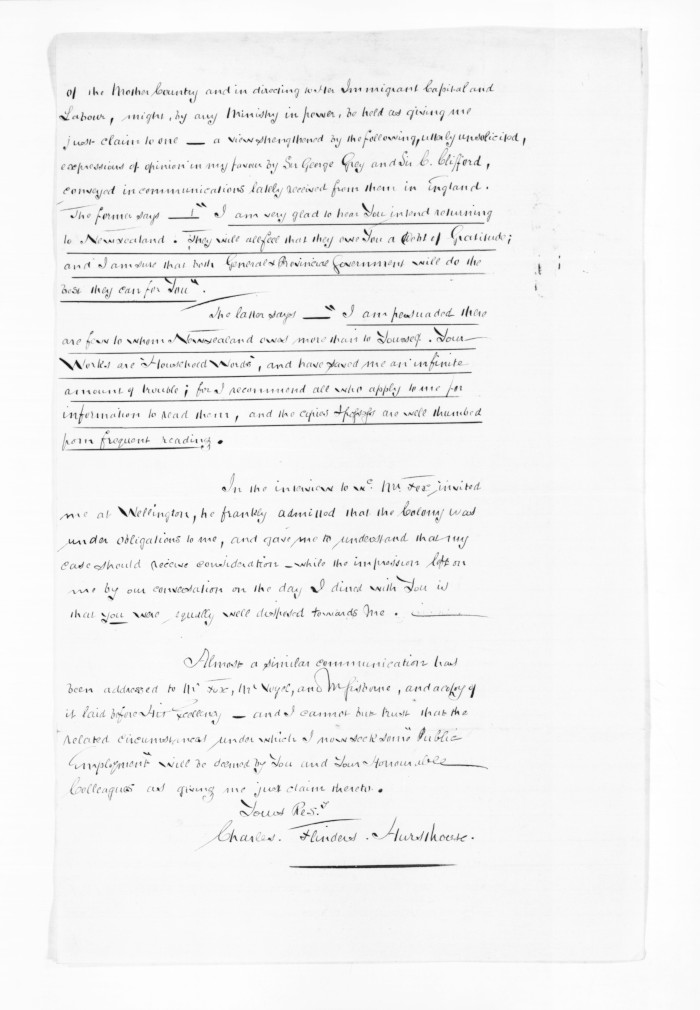 of the Mother Country and in directing to Her Immigrant Capital and
Labour, might, by any Ministry in power, be held as giving me
just claim to one — a view strengthened by the following, utterly unsolicited,
expressions of opinion in my favour by Sir George Grey and Sir C. Clifford,
conveyed in communications lately received from them in England.
The former says — "I am very glad to hear You intend returning
to New Zealand. They will all feel that they owe You a Debt of Gratitude;
and I am sure that both General & Provincial Government will do the
best they can for You".
The latter says — "I am persuaded there
are few to whom New Zealand owes more than to Yourself. Your
Works are "Household Words", and have saved me an infinite
amount of trouble; for I recommend all who apply to me for
information to read them, and the copies I possess are well thumbed
from frequent reading.
In the interview to wc. Mr. Fox invited
me at Wellington, he frankly admitted that the Colony was
under obligations to me, and gave me to understand that my
case should receive consideration — while the impression left on
me by our conversation on the day I dined with You is
that you were equally well disposed towards Me.
Almost a similar communication has
been addressed to Mr Fox, Mr Vogel, and Mr Gisborne, and a copy of
it laid before His Excellency — and I cannot but trust that the
related circumstances under which I now seek some "Public
Employment" will be deemed by You and Your Honourable
Colleagues as giving me just claim thereto.
Yours Resy
Charles. Flinders. Hursthouse.